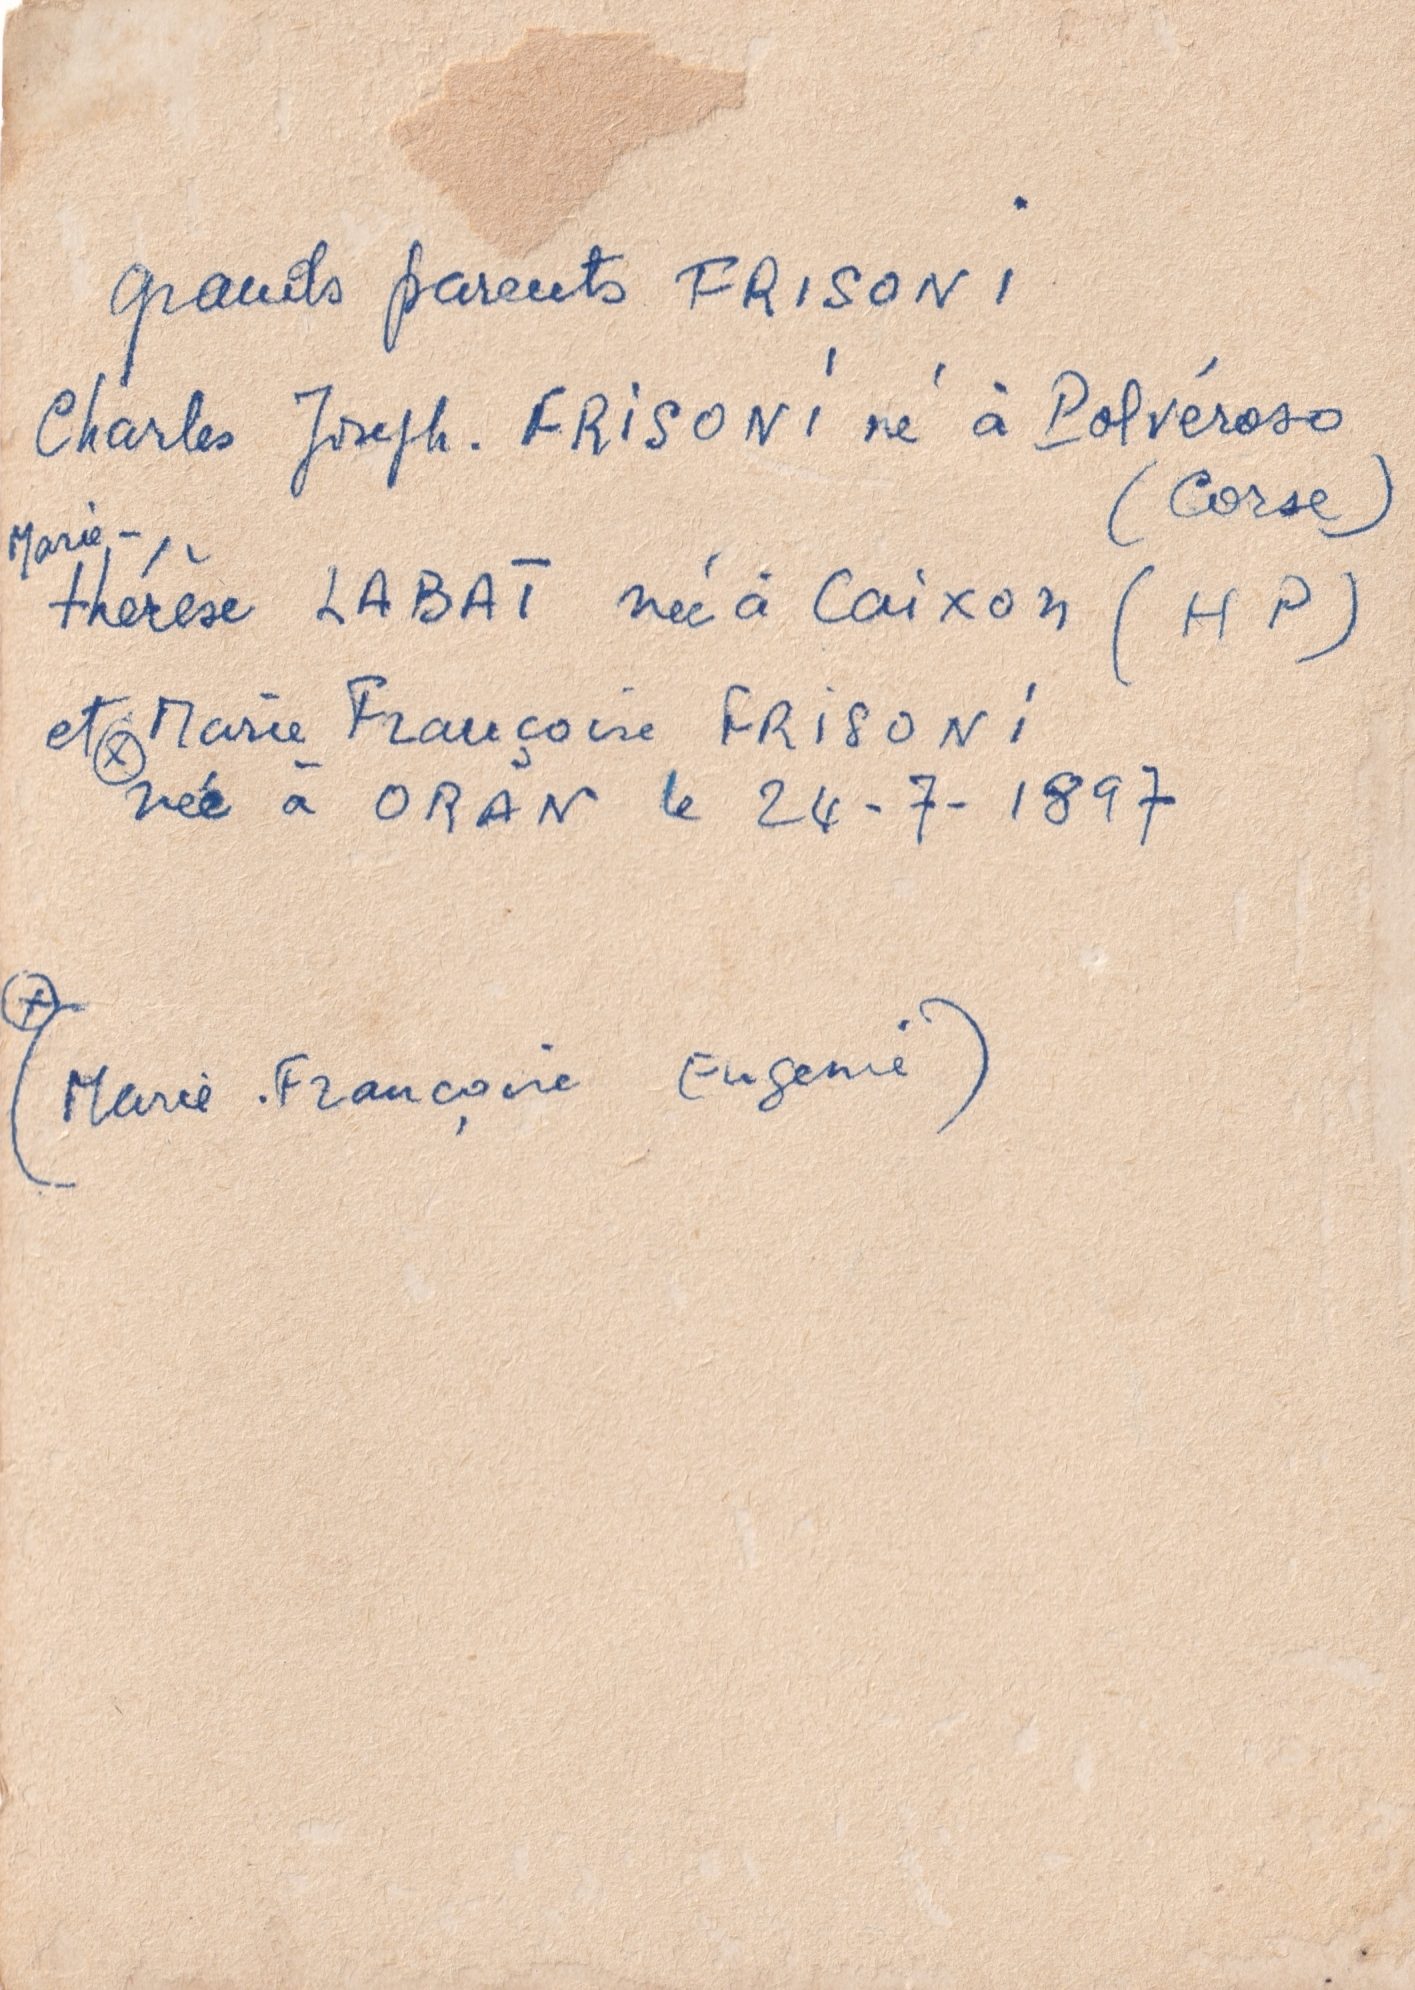 grands parents FRISONI
Charles Joseph. FRISONI né à Polvéroso
(Corse)
Marie-
thérèse LABAT née à Caixon (HP)
et ⊗ Marie Françoise FRISONI
née à ORAN le 24-7-1897
⊗
(Marie.Françoise Eugenie)